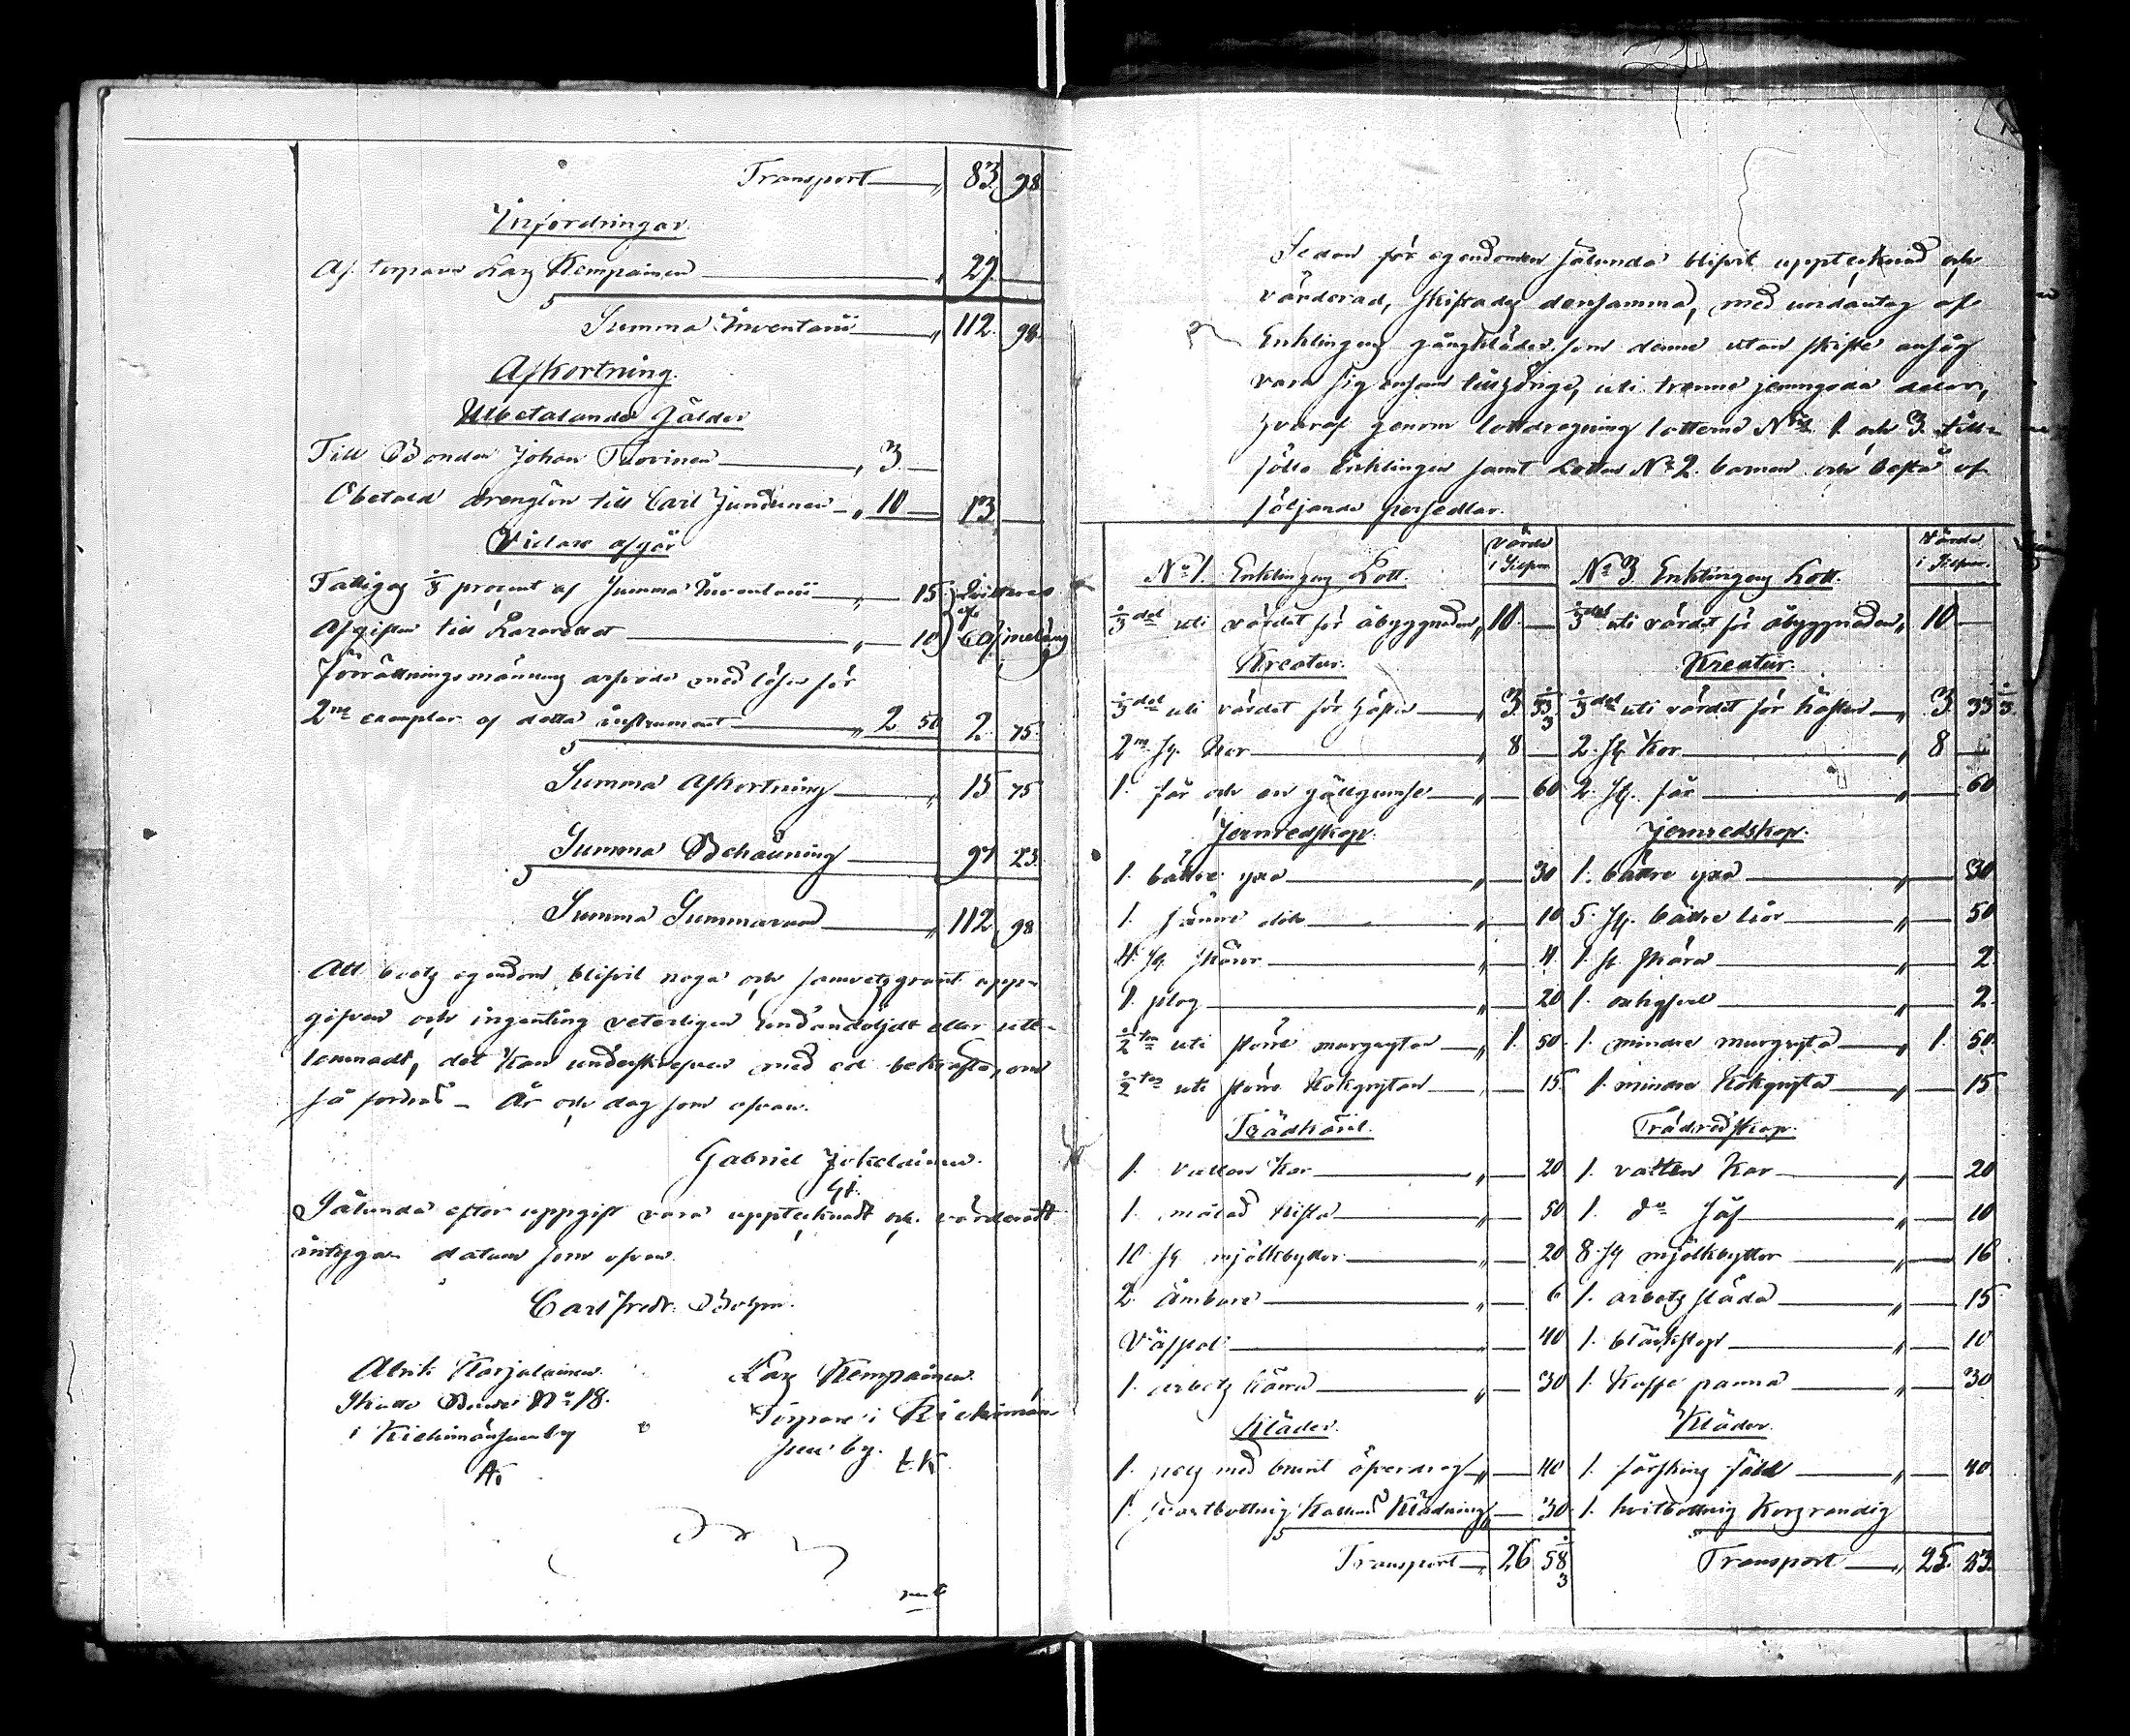 Transport — „ 83. 98.
Infordringar.
Af torparn Lars Kempainen — „ 29. —
Summa Inventarii — „ 112. 98.
Afkortning.
Utbetalande Gälder
Till Bonden Johan Tuorinen — „ 3. —
Obetald drenglön till Carl Jundunen — „ 10 — 13 —
Vidare afgår
Fattigas 1/8 procent af Summa Inventarii — „ — 15.
Afgiften till Lazarettet — „ — 10
Förrättningsmännens arfvode med lösen för
2ne exemplar af detta instrument — „ 2 50 2. 75.
Summa Afkortning — „ 15 75
Summa Behållning — 97 23.
Summa Summarum — „ 112 98
Att boets egendom blifvit noga och samvetsgrant upp-
gifven och ingenting veterligen undandöljdt eller ute-
lemnadt, det kan underskrefven med ed bekräfta, om
så fordras – År och dag som ofvan.
Gabriel Jokelainen.
Sålunda efter uppgift vara upptecknadt och värderadt
intygar datum som ofvan.
Carl Fredr.
Alrik Karjalainen.
Skatte Bonde No 18.
i Kiehimänsuu by
Lars Kempainen.
Torpare i Kiehimän-
suu by. L.K
Sedan för egendomen sålunda blifvit upptecknad och
värderad, skiftades densamma, med undantag af
Enklingens gångkläder som denne utan skifte ansåg
vara sig ensam tillhörige, uti trenne jemngoda delar,
hvaraf genom lottdragning lotterne Nris 1 och 3 till-
föllo Enklingen samt Lotten No 2. barnen och bestå af
följande persedlar.
No 1. Enklingens Lott. Värde i Silfver No 3 Enklingens Lott. Värde i Silfver.
1/3 del uti värdet för åbyggnaden „ 10. — 1/3 del uti värdet för åbyggnaden „ 10 —
Kreatur. Kreatur.
1/3 del uti värdet för hästen — „ 3. 33 1/3 1/3 del uti värdet för hästen — „ 3 33 1/3
2ne st. Kor — „ 8 — 2. st. Kor — „ 8 —
1. får och en gällgumse — „ — 60 2. st. får — „ — 60
Jernredskap. Jernredskap.
1. bättre yxa — „ — 30 1. bättre yxa — „ — 30
1. sämre dito — „ — 10 5. st. bättre liar — „ — 50
4. st. skäror — „ — 4. 1. st. skära — „ — 2.
1. plog — „ — 20 1. — „ — 2.
1/2 ten uti större murgrytan — „ 1. 50. 1. mindre murgryta — „ 1. 50.
1/2 ten uti större Kokgrytan — „ — 15. 1. mindre Kokgryta — „ — 15
Trädkäril. Trädredskap.
1. vatten Kar — „ — 20 1. vatten Kar — „ — 20
1. målad kista — „ — 50 1. do så — „ — 10
10 st mjölkbyttor — „ — 20 8. st mjölkbyttor — „ — 16
2. Ämbare — „ — 6 1. arbets släda — „ — 15
Väfstol — „ — 40 1. — „ — 10
1. arbets kärra — „ — 30 1. Kaffe panna — „ — 30
Kläder. Kläder.
1. päls med brunt öfverdrag — „ — 40 1. fårskins fäll — „ — 40.
1. svartbottnig Kattuns Klädning „ — 30. 1. hvitbottnig Korsrandig
Transport — „ 26 58 1/3 Transport — „ 25. 83.